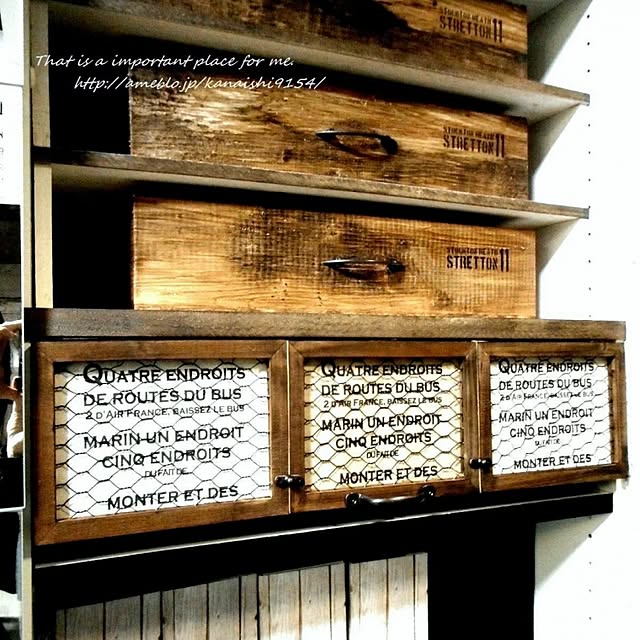 That is a important place for me.
http://ameblo.jp/kanaishi9154/
STOCKTON HEATH
STRETTON 11
STOCKTON HEATH
STRETTON 11
STOCKTON HEATH
STRETTON 11
QUATRE ENDROITS
DE ROUTES DU BUS
2 D'AIR FRANCE, BAISSEZ LE BUS
MARIN UN ENDROIT
CINQ ENDROITS
DU FAIT DE
MONTER ET DES
QUATRE ENDROITS
DE ROUTES DU BUS
2 D'AIR FRANCE, BAISSEZ LE BUS
MARIN UN ENDROIT
CINQ ENDROITS
DU FAIT DE
MONTER ET DES
QUATRE ENDROITS
DE ROUTES DU BUS
2 D'AIR FRANCE, BAISSEZ LE BUS
MARIN UN ENDROIT
CINQ ENDROITS
DU FAIT DE
MONTER ET DES